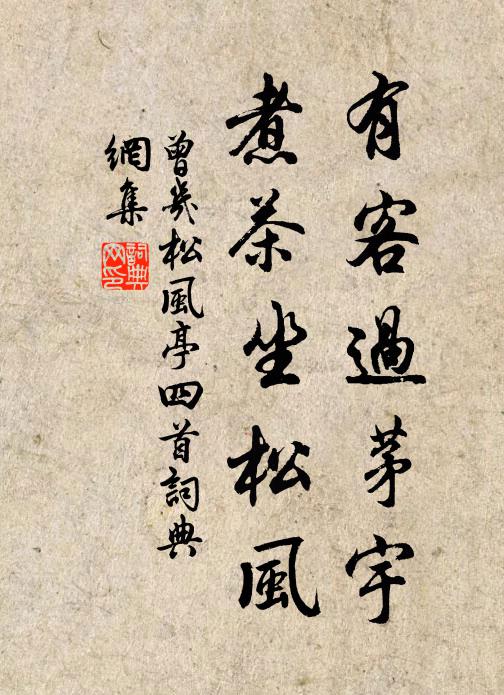 有客過茅宇
煮茶坐松風
曾幾松風亭四首詞典
網集
詞典
网印